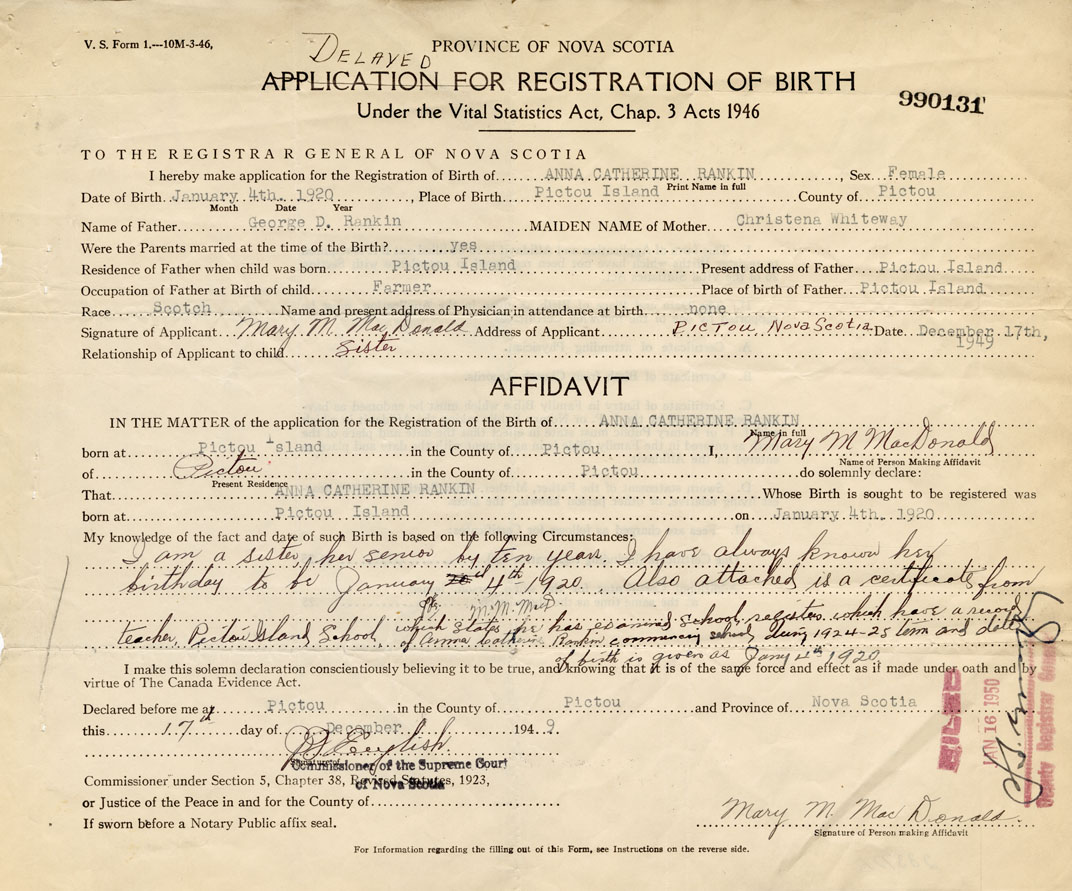 V. S. Form 1.---10M-3-46,
DELAYED
PROVINCE OF NOVA SCOTIA
APPLICATION FOR REGISTRATION OF BIRTH
Under the Vital Statistics Act, Chap. 3 Acts 1946
990131
TO THE REGISTRA R GENERAL OF NOVA SCOTIA
I hereby make application for the Registration of Birth of ANNA CATHERINE RANKIN, Sex Female
Print Name in full
Date of Birth January 4th. 1920, Place of Birth Pictou Island County of Pictou
Month Date Year
Name of Father George D. Rankin MAIDEN NAME of Mother Christena Whiteway
Were the Parents married at the time of the Birth? yes
Residence of Father when child was born Pictou Island Present address of Father Pictou Island
Occupation of Father at Birth of child Farmer Place of birth of Father Pictou Island
Race Scotch Name and present address of Physician in attendance at birth none
Signature of Applicant Mary M. MacDonald Address of Applicant PICTOU NOVA SCOTIA Date December 17th, 1949
Relationship of Applicant to child Sister
AFFIDAVIT
IN THE MATTER of the application for the Registration of the Birth of ANNA CATHERINE RANKIN
Name in full
born at Pictou Island in the County of Pictou I, Mary M MacDonald
Name of Person Making Affidavit
of Pictou in the County of Pictou do solemnly declare:
Present Residence
That ANNA CATHERINE RANKIN Whose Birth is sought to be registered was
born at Pictou Island on January 4th. 1920
My knowledge of the fact and date of such Birth is based on the following Circumstances:
I am a sister, her senior by ten years. I have always known her
birthday to be January 4th 1920. Also attached is a certificate from
M.M. MacD.
teacher, Pictou Island School, which states he has examined School registers which have a record
of Anna Catherine Rankin commencing school during 1924-25 term and date
of birth is given as Jany 4th 1920
I make this solemn declaration conscientiously believing it to be true, and knowing that it is of the same force and effect as if made under oath and by
virtue of The Canada Evidence Act.
Declared before me at Pictou in the County of Pictou and Province of Nova Scotia
this 17th day of December 1949
English
Signature of
Commissioner of the Supreme Court
of Nova Scotia
Commissioner under Section 5, Chapter 38, Revised Statutes, 1923,
or Justice of the Peace in and for the County of
If sworn before a Notary Public affix seal.
Mary M. MacDonald
Signature of Person making Affidavit
For Information regarding the filling out of this Form, see Instructions on the reverse side.
FILED
JAN 16 1950
Deputy Registrar General